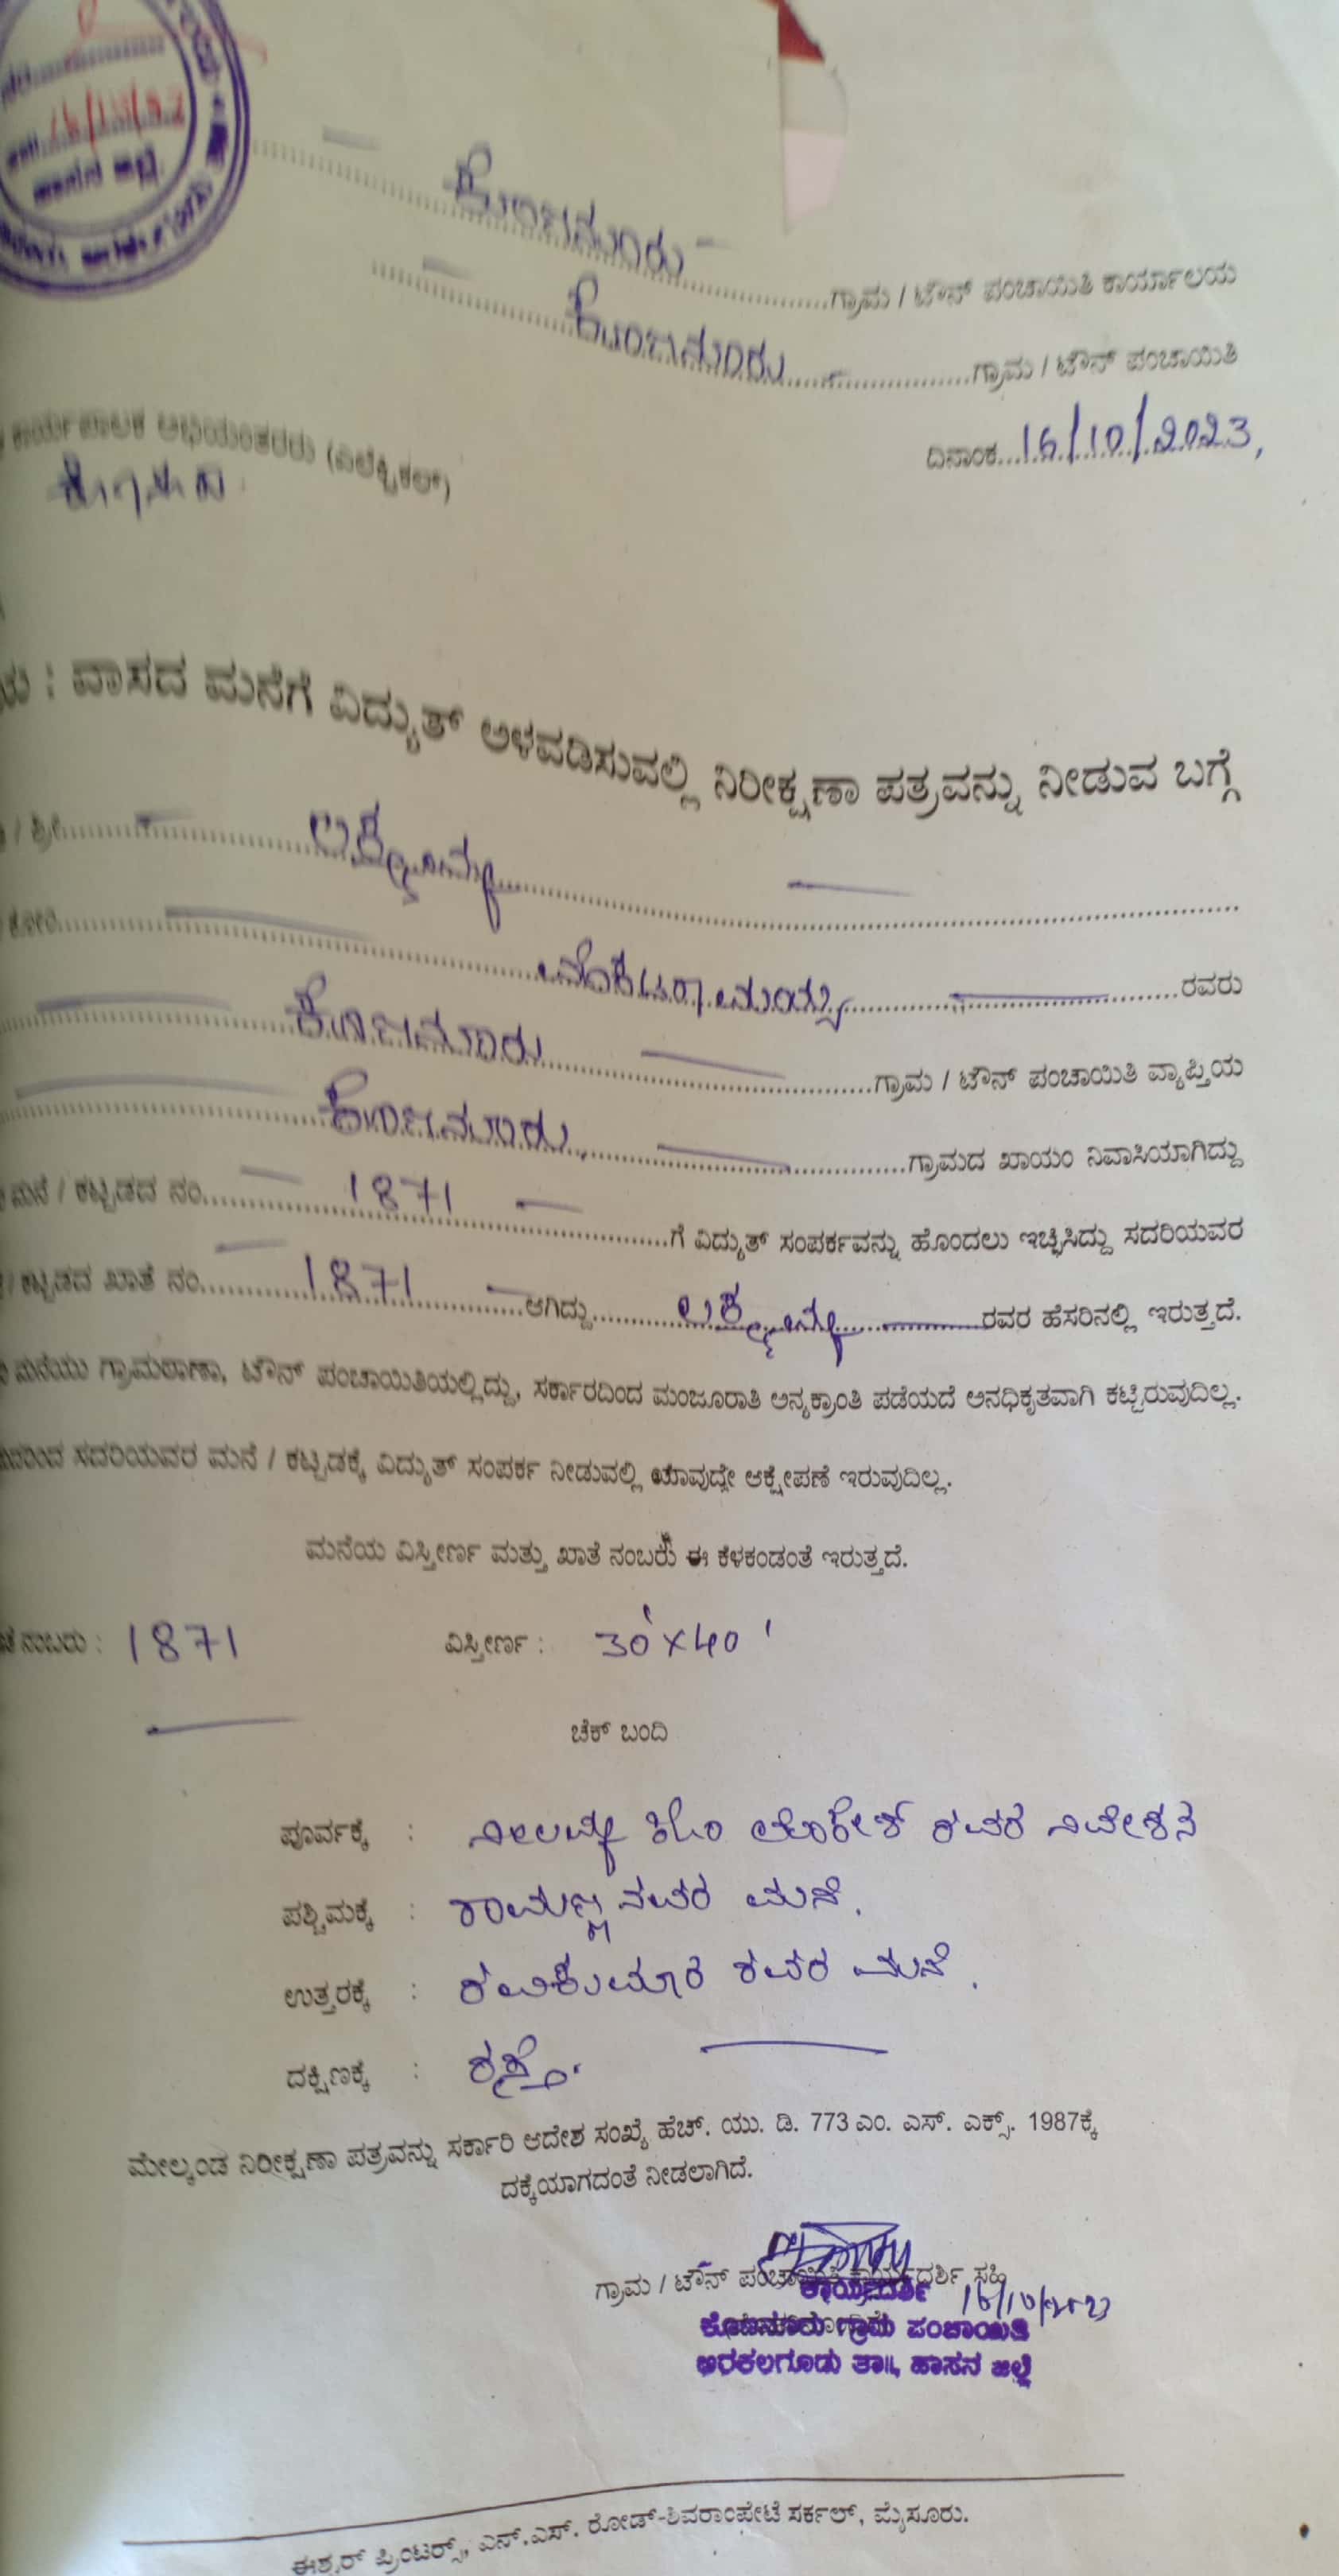 16/10/23
ಹಾಸನ ಜಿಲ್ಲೆ
ಕೊಣನೂರು ಗ್ರಾಮ / ಟೌನ್ ಪಂಚಾಯಿತಿ ಕಾರ್ಯಾಲಯ
ಕೊಣನೂರು ಗ್ರಾಮ / ಟೌನ್ ಪಂಚಾಯಿತಿ
ದಿನಾಂಕ 16/10/2023,
ಕಾರ್ಯಪಾಲಕ ಅಭಿಯಂತರರು (ಎಲೆಕ್ಟ್ರಿಕಲ್)
: ವಾಸದ ಮನೆಗೆ ವಿದ್ಯುತ್ ಅಳವಡಿಸುವಲ್ಲಿ ನಿರೀಕ್ಷಣಾ ಪತ್ರವನ್ನು ನೀಡುವ ಬಗ್ಗೆ
/ ಶ್ರೀ ಲಕ್ಷ್ಮಮ್ಮ
ಕೋಂ ವೆಂಕಟರಾಮಯ್ಯ ರವರು
ಕೊಣನೂರು ಗ್ರಾಮ / ಟೌನ್ ಪಂಚಾಯಿತಿ ವ್ಯಾಪ್ತಿಯ
ಕೊಣನೂರು ಗ್ರಾಮದ ಖಾಯಂ ನಿವಾಸಿಯಾಗಿದ್ದು
ಮನೆ / ಕಟ್ಟಡದ ನಂ. 1871 ಗೆ ವಿದ್ಯುತ್ ಸಂಪರ್ಕವನ್ನು ಹೊಂದಲು ಇಚ್ಛಿಸಿದ್ದು ಸದರಿಯವರ
/ ಕಟ್ಟಡದ ಖಾತೆ ನಂ. 1871 ಆಗಿದ್ದು ಲಕ್ಷ್ಮಮ್ಮ ರವರ ಹೆಸರಿನಲ್ಲಿ ಇರುತ್ತದೆ.
ಮನೆಯು ಗ್ರಾಮಠಾಣಾ, ಟೌನ್ ಪಂಚಾಯಿತಿಯಲ್ಲಿದ್ದು, ಸರ್ಕಾರದಿಂದ ಮಂಜೂರಾತಿ ಅನ್ಯಕ್ರಾಂತಿ ಪಡೆಯದೆ ಅನಧಿಕೃತವಾಗಿ ಕಟ್ಟಿರುವುದಿಲ್ಲ.
ಸದರಿಯವರ ಮನೆ / ಕಟ್ಟಡಕ್ಕೆ ವಿದ್ಯುತ್ ಸಂಪರ್ಕ ನೀಡುವಲ್ಲಿ ಯಾವುದೇ ಆಕ್ಷೇಪಣೆ ಇರುವುದಿಲ್ಲ.
ಮನೆಯ ವಿಸ್ತೀರ್ಣ ಮತ್ತು ಖಾತೆ ನಂಬರು ಈ ಕೆಳಕಂಡಂತೆ ಇರುತ್ತದೆ.
ನಂಬರು : 1871 ವಿಸ್ತೀರ್ಣ : 30'x40'
ಚೆಕ್ ಬಂದಿ
ಪೂರ್ವಕ್ಕೆ : ನೀಲಮ್ಮ ಕೋಂ ಲೋಕೇಶ್ ರವರ ನಿವೇಶನ
ಪಶ್ಚಿಮಕ್ಕೆ : ರಾಮಣ್ಣನವರ ಮನೆ.
ಉತ್ತರಕ್ಕೆ : ರವಿಕುಮಾರ ರವರ ಮನೆ.
ದಕ್ಷಿಣಕ್ಕೆ : ರಸ್ತೆ.
ಮೇಲ್ಕಂಡ ನಿರೀಕ್ಷಣಾ ಪತ್ರವನ್ನು ಸರ್ಕಾರಿ ಆದೇಶ ಸಂಖ್ಯೆ ಹೆಚ್. ಯು. ಡಿ. 773 ಎಂ. ಎಸ್. ಎಕ್ಸ್. 1987ಕ್ಕೆ
ದಕ್ಕೆಯಾಗದಂತೆ ನೀಡಲಾಗಿದೆ.
ಗ್ರಾಮ / ಟೌನ್ ಪಂಚಾಯಿತಿ ಕಾರ್ಯದರ್ಶಿ ಸಹಿ
ಕಾರ್ಯದರ್ಶಿ 16/10/2023
ಕೊಣನೂರು ಗ್ರಾಮ ಪಂಚಾಯಿತಿ
ಅರಕಲಗೂಡು ತಾ||, ಹಾಸನ ಜಿಲ್ಲೆ
ಈಶ್ವರ್ ಪ್ರಿಂಟರ್ಸ್, ಎನ್.ಎಸ್. ರೋಡ್-ಶಿವರಾಂಪೇಟೆ ಸರ್ಕಲ್, ಮೈಸೂರು.